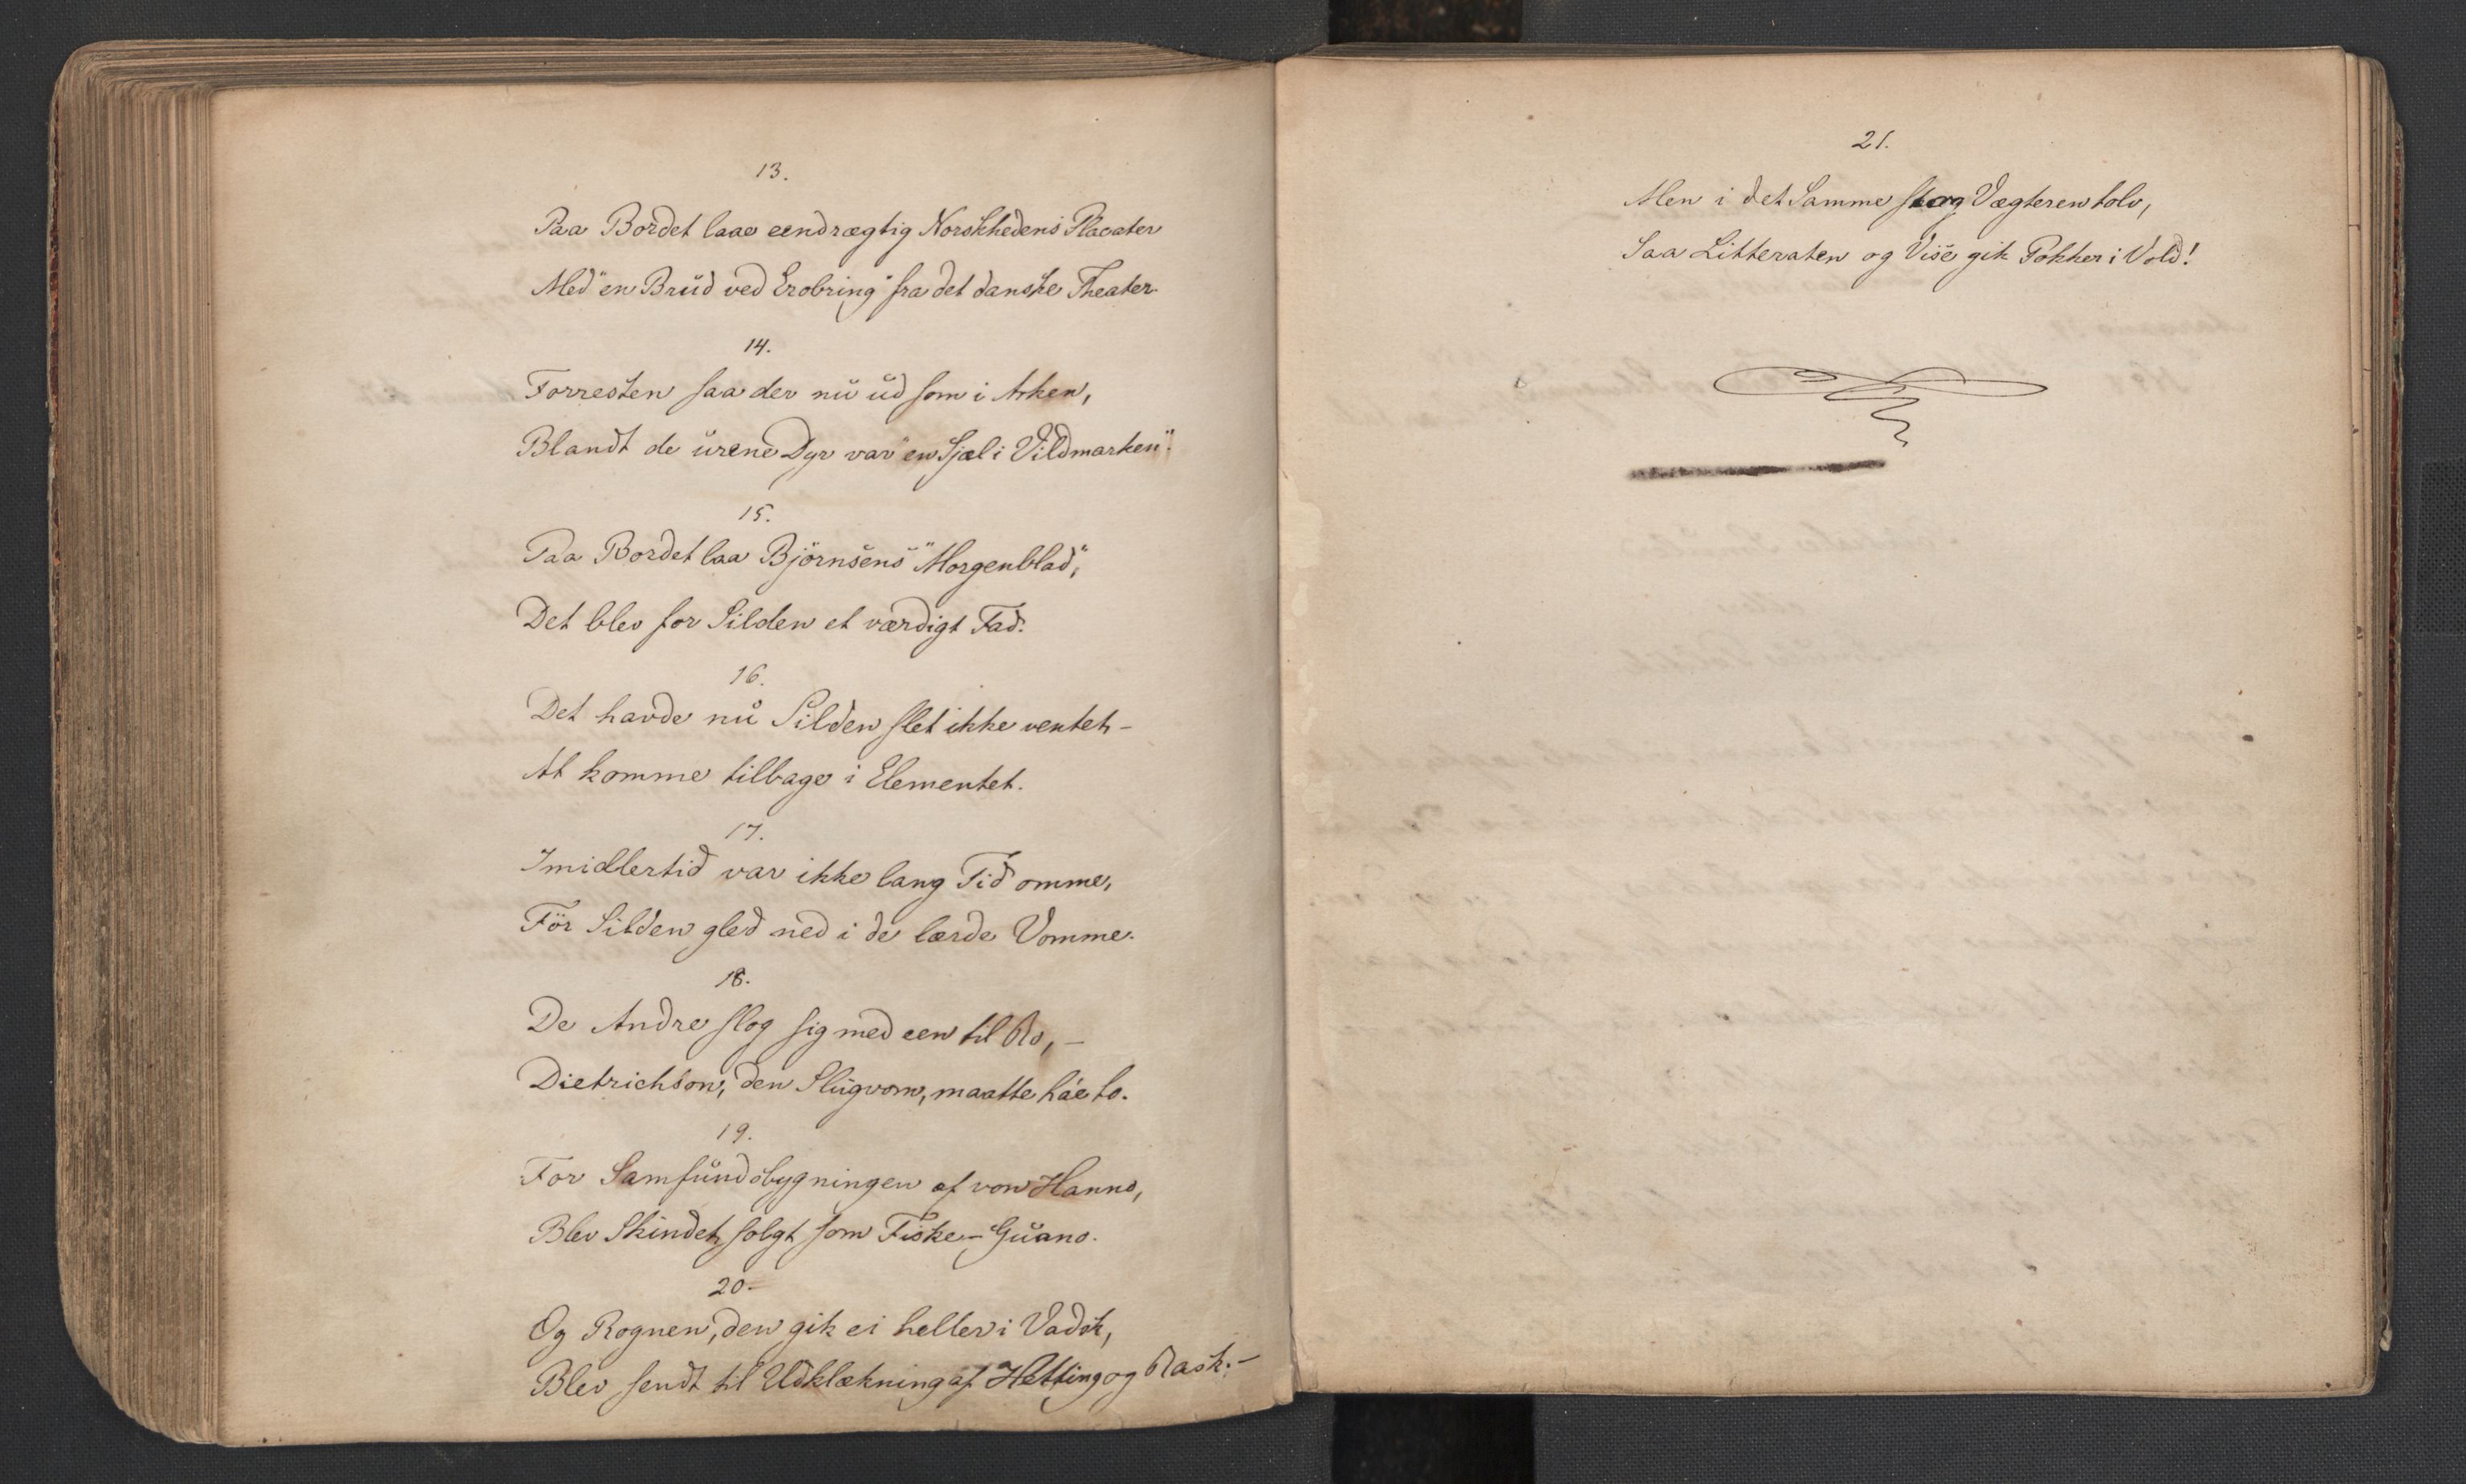 13.
Paa Bordet laae eendrægtig Norskhedens Placater
Med "en Brud ved Erobring" fra det danske Theater.
14.
Forresten saa der nu ud som i Arken,
Blandt de urene Dyr var "en Sjæl i Vildmarken".
15.
Paa Bordet laa Björnsens "Morgenblad",
Det blev for Silden et værdigt Fad.
16.
Det havde nu Silden slet ikke ventet –
At komme tilbage i Elementet.
17.
Imidlertid var ikke lang Tid omme,
För Silden gled ned i de lærde Vomme.
18.
De Andre slog sig med een til Ro, –
Dietrichson, den Slugvom, maatte ha'e to.
19.
For Samfundsbygningen af von Hanno,
Blev Skindet solgt som Fiske-Guano.
20.
Og Rognen, den gik ei heller i Vadsk,
Blev sendt til Udklækning af Hetting og Rask. –
21.
Men i det Samme slog Vægteren tolv,
Saa Litteraten og Vise gik Pokker i Vold!